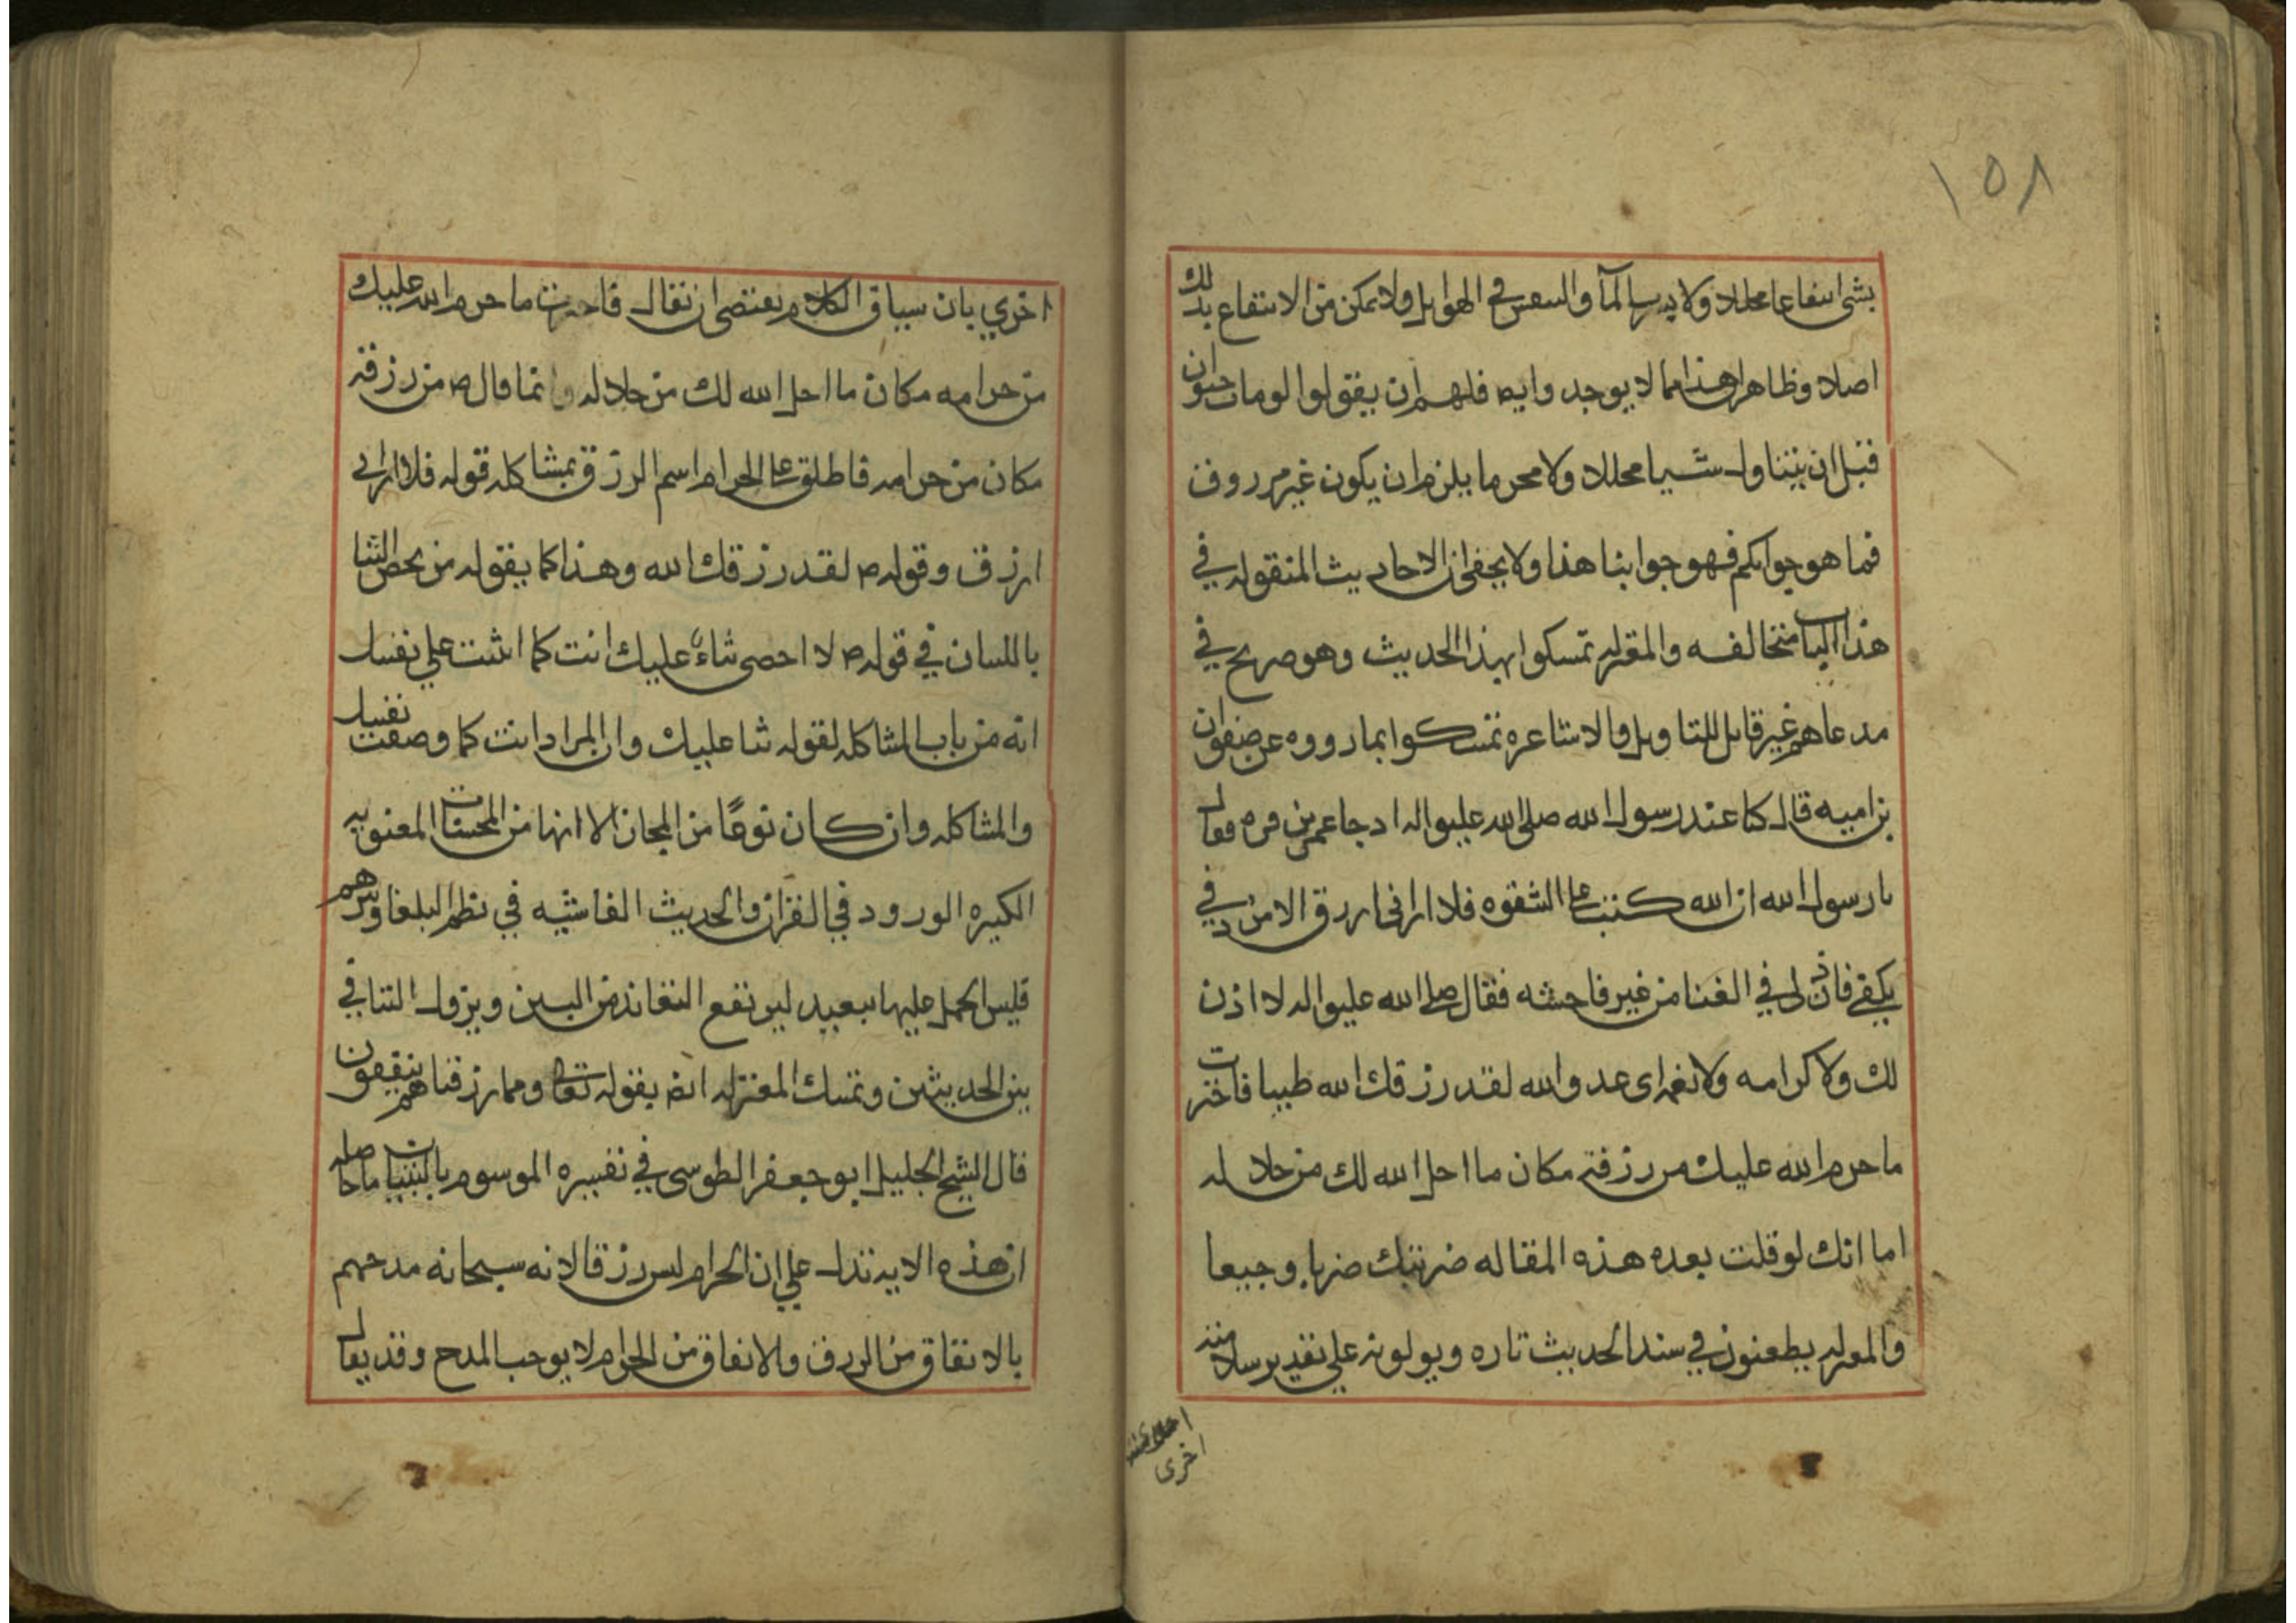 ١٥٨
بشئ انتفاعا محللا ولا يشرب الماء والتنفس في الهواء بل ولا تمكن من الانتفاع بذلك
اصلا وظاهر ان هذا مما لا يوجد وايضا فلهم ان يقولوا لو مات حيوان
قبل ان يتناول شيا محللا ولا محرما يلزم ان يكون غير مرزوق
فما هو جوابكم فهو جوابنا هذا ولا يخفى ان الاحاديث المنقوله في
هذا الباب متخالفه والمعتزله تمسكوا بهذا الحديث وهو صريح في
مدعاهم غير قابل للتاويل والاشاعره تمسكوا بما رووه عن صفوان
بن اميه قال كنا عند رسول الله صلى الله عليه واله اذ جا عمر بن قره فقال
يا رسول الله ان الله كتب على الشقوه فلا اراني ارزق الا من دفي
بكفي فاذن لي في الغنا من غير فاحشه فقال صلى الله عليه واله لا اذن
لك ولا كرامه ولا نعمه اى عدو الله لقد رزقك الله طيبا فاخترت
ما حرم الله عليك من رزقه مكان ما احل الله لك من حلاله
اما انك لو قلت بعده هذه المقاله ضربتك ضربا وجيعا
والمعتزله يطعنون في سند الحديث تاره ويولونه على تقدير سلامته
اخرى
اخري بان سياق الكلام يقتضى ان يقال فاخترت ما حرم الله عليك
من حرامه مكان ما احل الله لك من حلاله وانما قال ص من رزقه
مكان من حرامه فاطلق على الحرام اسم الرزق بمشاكله قوله فلا اراني
ارزق وقوله ص لقد رزقك الله وهذا كما يقوله من يخص الثنا
باللسان في قوله ص لا احصى ثناءً عليك انت كما اثنيت علي نفسك
انه من باب المشاكله لقوله ثنا عليك وان المراد انت كما وصفت نفسك
والمشاكله وان كان نوعًا من المجاز الا انها من المحسنات المعنويه
الكثيره الورود في القران والحديث الفاشيه في نظم البلغا ونثرهم
فليس الحمل عليها ببعيد ليرتفع التعاند من البين ويزول التنافي
بين الحديثين وتمسك المعتزله ايضا بقوله تعالى ومما رزقناهم ينفقون
قال الشيخ الجليل ابو جعفر الطوسى في تفسيره الموسوم بالتبيان ما حاصله
ان هذه الايه تدل علي ان الحرام ليس رزقا لانه سبحانه مدحهم
بالانفاق من الرزق والانفاق من الحرام لا يوجب المدح وقد يقال